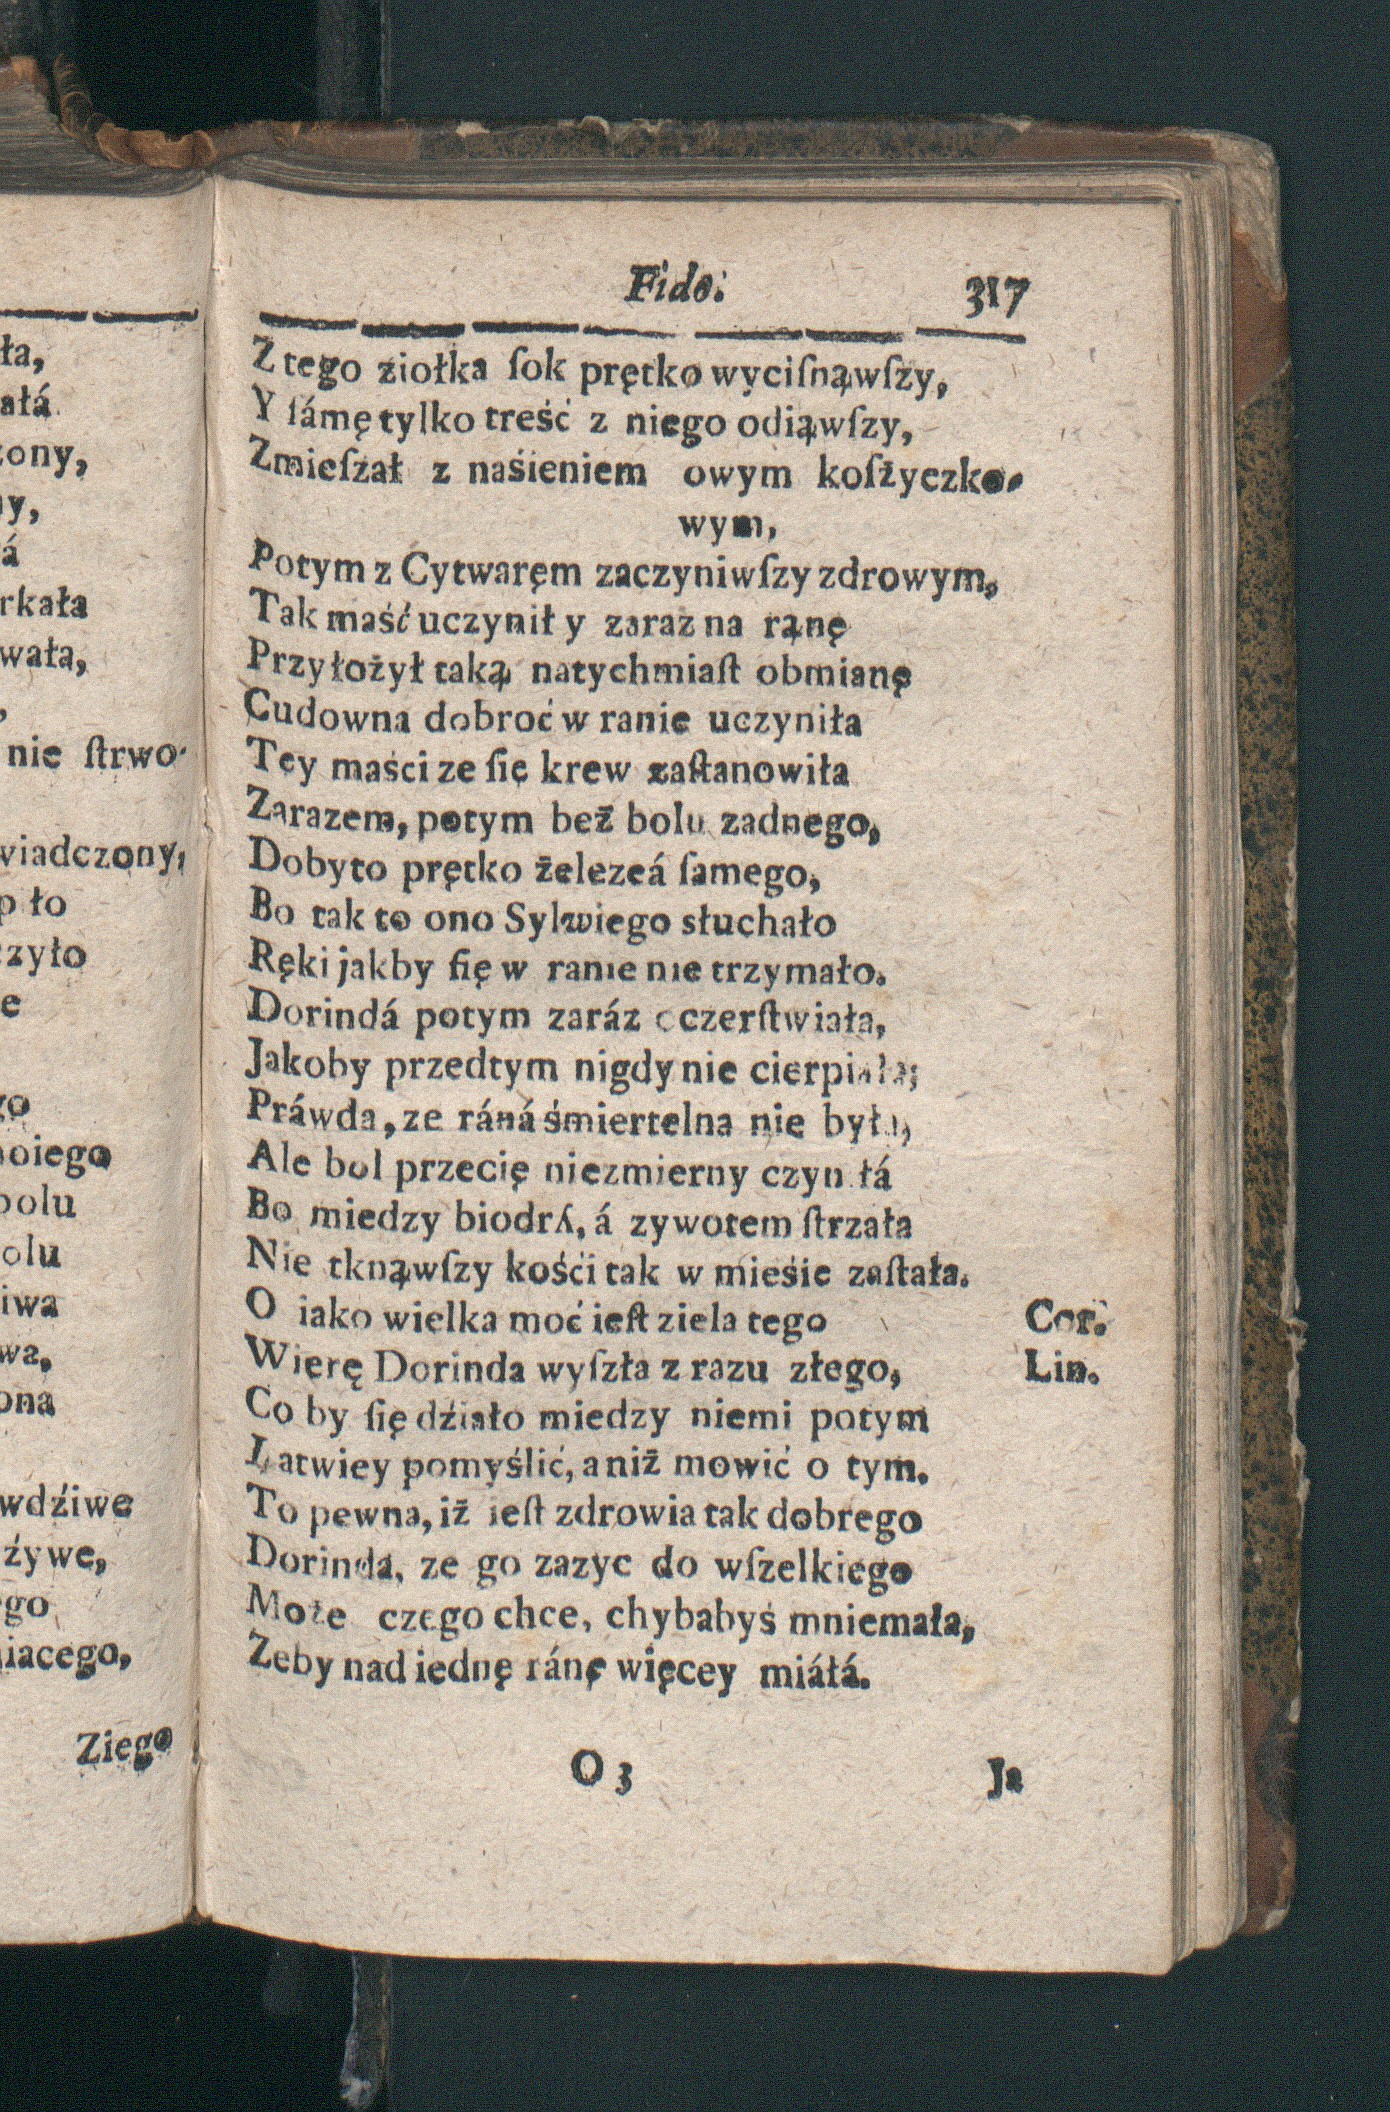 ła,
ałá
zony,
ny,
á
rkała
wała,
,
nie ſtrwo-
wiadczony,
p ło
czyło
e
go
moiego
bolu
olu
iwa
wa,
ona
wdźiwe
źywe,
ego
iacego,
Ziego
Fido. 317
Z tego ziołka ſok prętko wyciſnąwſzy,
Y ſámę tylko treść z niego odiąwſzy,
Zmieſzał z naśieniem owym koſżyczko-
wym,
Potym z Cytwaręm zaczyniwſzy zdrowym,
Tak maść uczynił y zaraz na ranę
Przyłożył taką natychmiaſt obmianę
Cudowna dobroć w ranie uczyniła
Tey maści ze ſię krew zaſtanowiła
Zarazem, potym beż bolu zadnego,
Dobyto prętko żelezcá ſamego,
Bo tak to ono Sylwiego słuchało
Ręki jakby ſię w ranie nie trzymało.
Dorindá potym zaráz oczerſtwiała,
Jakoby przedtym nigdy nie cierpiała;
Práwda, ze ráná śmiertelna nie była,
Ale bol przecię niezmierny czyn łá
Bo miedzy biodrá, á zywotem ſtrzała
Nie tknąwſzy kośći tak w mieśie zaſtała.
O iako wielka moć ieſt ziela tego Cor.
Wierę Dorinda wyſzła z razu złego, Lin.
Co by ſię dźiało miedzy niemi potym
Latwiey pomyślić, aniż mowić o tym.
To pewna, iż ieſt zdrowia tak dobrego
Dorinda, ze go zazyc do wſzelkiego
Może czego chce, chybabyś mniemała,
Zeby nad iednę ránę więcey miáłá.
O 3 Ja